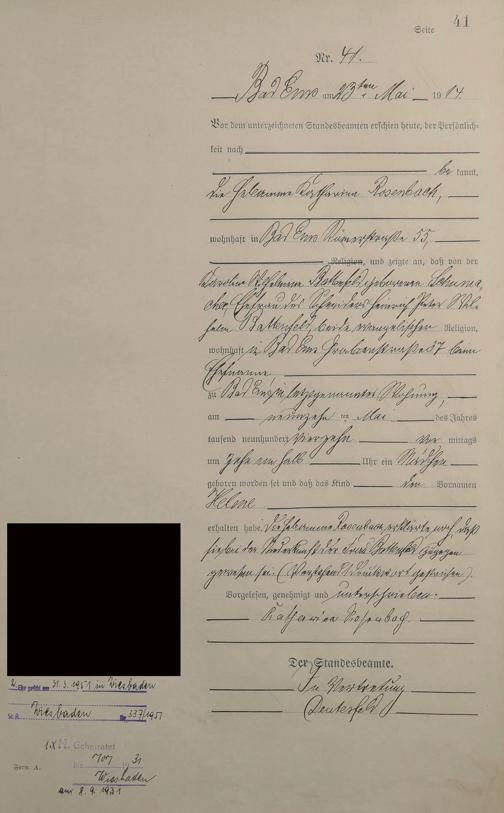 Seite 41
Nr. 41.
Bad Ems am 23ten Mai 1914.
Vor dem unterzeichneten Standesbeamten erschien heute, der Persönlich-
keit nach
be kannt,
die Hebamme Katharina Rosenbach,
wohnhaft in Bad Ems Römerstraße 55,
Religion, und zeigte an, daß von der
Karoline Wilhelmine Battenfeld geborenen
Ehefrau des Heinrich Peter Wil-
helm Battenfeld, beide evangelischer Religion,
wohnhaft in Bad Ems Grabenstraße 37 beim
Ehemanne
zu Bad Ems in letztgenannter Wohnung,
am neunzehn ten Mai des Jahres
tausend neunhundert vierzehn Vor mittags
um zehn ein halb Uhr ein Mädchen
geboren worden sei und daß das Kind den Vornamen
Helene
erhalten habe. Die Hebamme Rosenbach erklärte noch, daß
sie bei der Niederkunft der Frau Battenfeld zugegen
gewesen sei. (Vorstehend 1 Druckwort gestrichen).
Vorgelesen, genehmigt und unterschrieben.
Katharina Rosenbach.
Der Standesbeamte.
In Vertretung
2. Ehe geschl. am 31.3.1951 in Wiesbaden
St.A. Wiesbaden Nr. 337/1951
Geheiratet
Nr. 707 1931
Wiesbaden
am 8.9.1931
Form A.